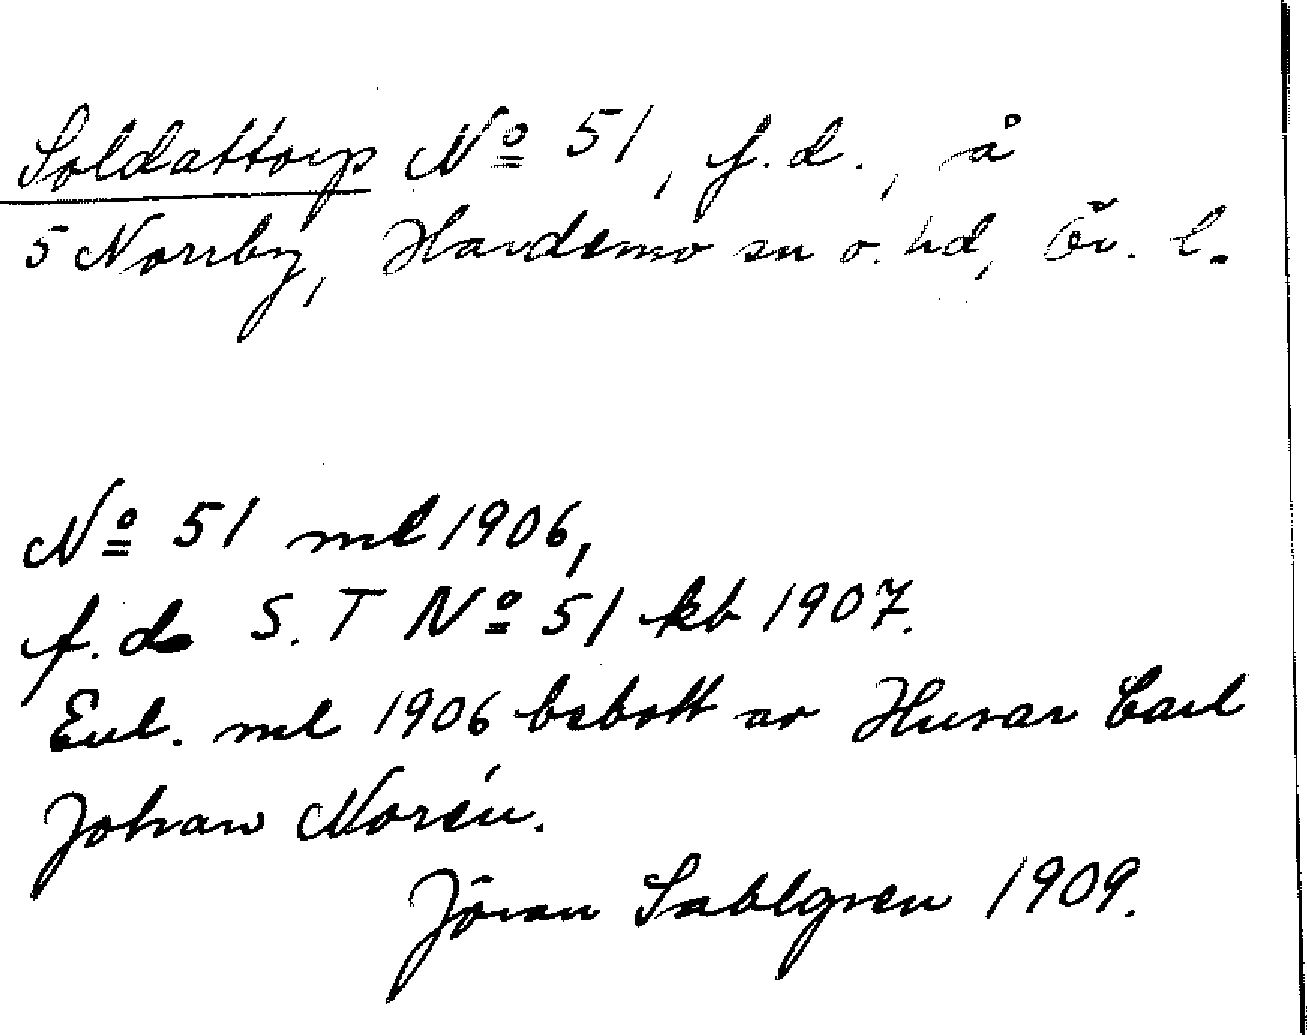 Soldattorp Nº 51, f.d., å
5 Norrby, Hardemo sn o. hd, Ör. l.
Nº 51 ml 1906,
f.d. S.T Nº 51 kb 1907.
Enl. ml 1906 bebott av Husar Carl
Johan Norén.
Jöran Sahlgren 1909.